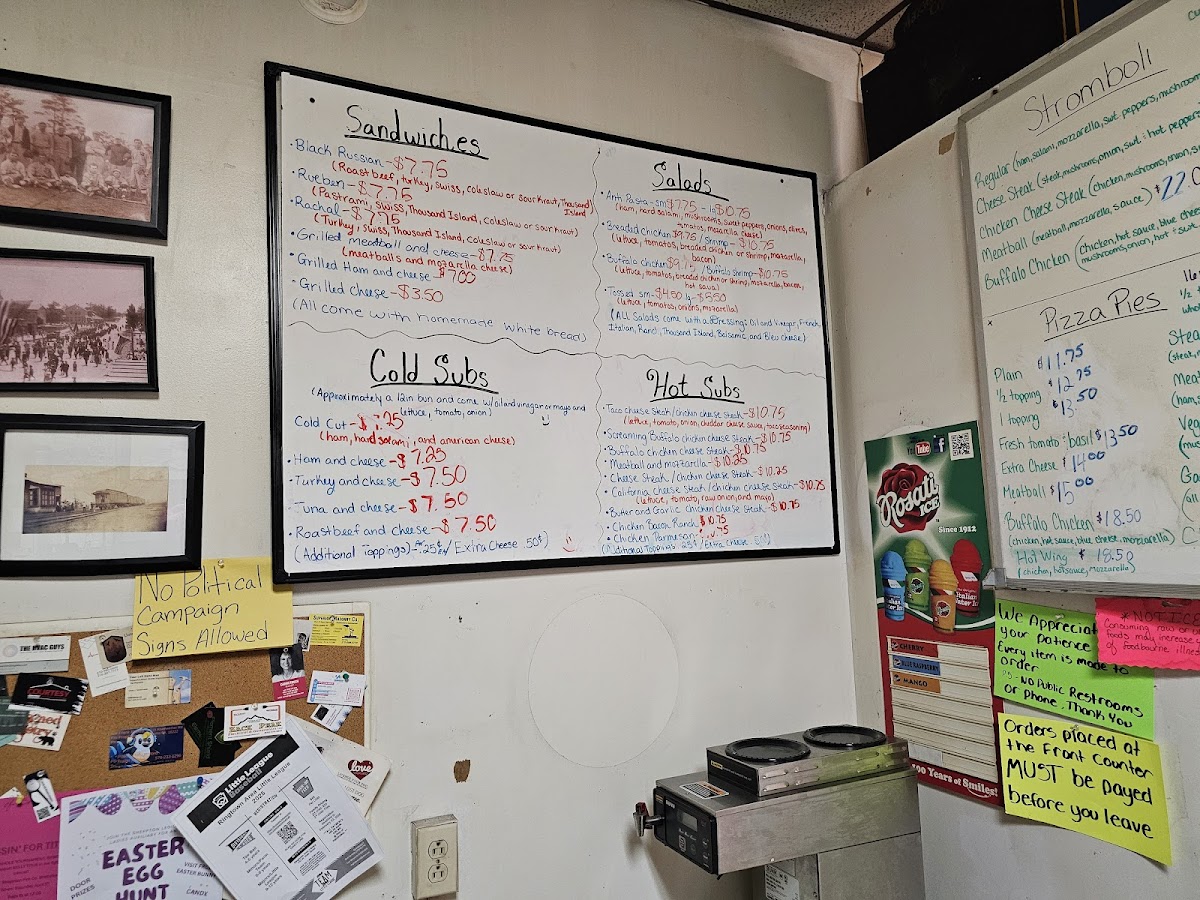 Sandwiches
· Black Russian - $7.75
(Roast beef, turkey, swiss, coleslaw or sour kraut, Thousand Island)
· Rueben - $7.75
(Pastrami, swiss, Thousand Island, coleslaw or sour kraut)
· Rachal - $7.75
(Turkey, Swiss, Thousand Island, coleslaw or sour kraut)
· Grilled meatball and cheese - $7.75
(meatballs and mozarella cheese)
· Grilled Ham and cheese - $7.00
· Grilled cheese - $3.50
(All come with homemade white bread)
Salads
· Anti Pasta - sm $7.75 - lg $10.75
(ham, hard salami, mushrooms, sweet peppers, onions, olives, tomatos, mozarella cheese)
· Breaded chicken $9.75 / Shrimp - $10.75
(lettuce, tomatos, breaded chicken or shrimp, mozarella, bacon)
· Buffalo chicken $9.75 / Buffalo Shrimp - $10.75
(lettuce, tomatos, breaded chicken or shrimp, mozarella, bacon, hot sauce)
· Tossed sm - $4.50 lg - $5.50
(lettuce, tomatos, onions, mozarella)
(ALL Salads come with a dressing: Oil and Vinegar, French,
Italian, Ranch, Thousand Island, Balsamic, and Bleu Cheese)
Cold Subs
(Approximately a 12in bun and come w/ oil and vinegar or mayo and
lettuce, tomato, onion)
Cold Cut - $7.25
(ham, hard salami, and american cheese)
· Ham and cheese - $7.25
· Turkey and cheese - $7.50
· Tuna and cheese - $7.50
· Roastbeef and Cheese - $7.50
(Additional Toppings) - .25¢ / Extra Cheese .50¢)
Hot Subs
· Taco cheese steak/chicken cheese steak - $10.75
(lettuce, tomato, onion, cheddar cheese sauce, taco seasoning)
· Screaming Buffalo chicken cheese steak - $10.75
· Buffalo chicken cheese steak - $10.75
· Meatball and mozzarella - $10.25
· Cheese Steak / Chicken cheese Steak - $10.25
· California cheese steak / chicken cheese steak - $10.75
(lettuce, tomato, raw onion, and mayo)
· Butter and Garlic Chicken Cheese Steak - $10.75
· Chicken Bacon Ranch $10.75
· Chicken Parmesan - $10.75
(Additional Toppings .25¢ / Extra Cheese .50¢)
Stromboli
Regular (ham, salami, mozzarella, swt. peppers, mushroom
Cheese Steak (steak, mushrooms, onion, swt. : hot peppers
Chicken Cheese Steak (chicken, mushrooms, onion, s
Meatball (meatball, mozzarella, sauce) $22.0
Buffalo Chicken (chicken, hot sauce, blue cheese,
mushrooms, onion, hot : swt.
Pizza Pies
Plain $11.75
½ topping $12.75
1 topping $13.50
Fresh tomato : basil $13.50
Extra Cheese $14.00
Meatball $15.00
Buffalo Chicken $18.50
(chicken, hot sauce, blue cheese, mozzarella)
Hot Wing $18.50
(chicken, hot sauce, mozzarella)
16"
½
Stea
(steak,
Meat
(ham,
Veg
Ga
You Tube
Rosati
ICE
Since 1912
CHERRY
BLUE RASPBERRY
MANGO
100 Years of Smiles!
We Appreciat
your patience
Every item is made to
order
PS - NO Public Restrooms
or Phone, Thank You
*NOTICE
Consuming raw or
foods may increase
of foodbourne illnes
Orders placed at
the front counter
MUST be payed
before you leave
No Political
Campaign
Signs Allowed
THE HVAC GUYS
COURTESY
love
Little League
Baseball
Ringtown Area Little League
2025
EASTER
EGG
HUNT
DOOR
PRIZES
CANDY